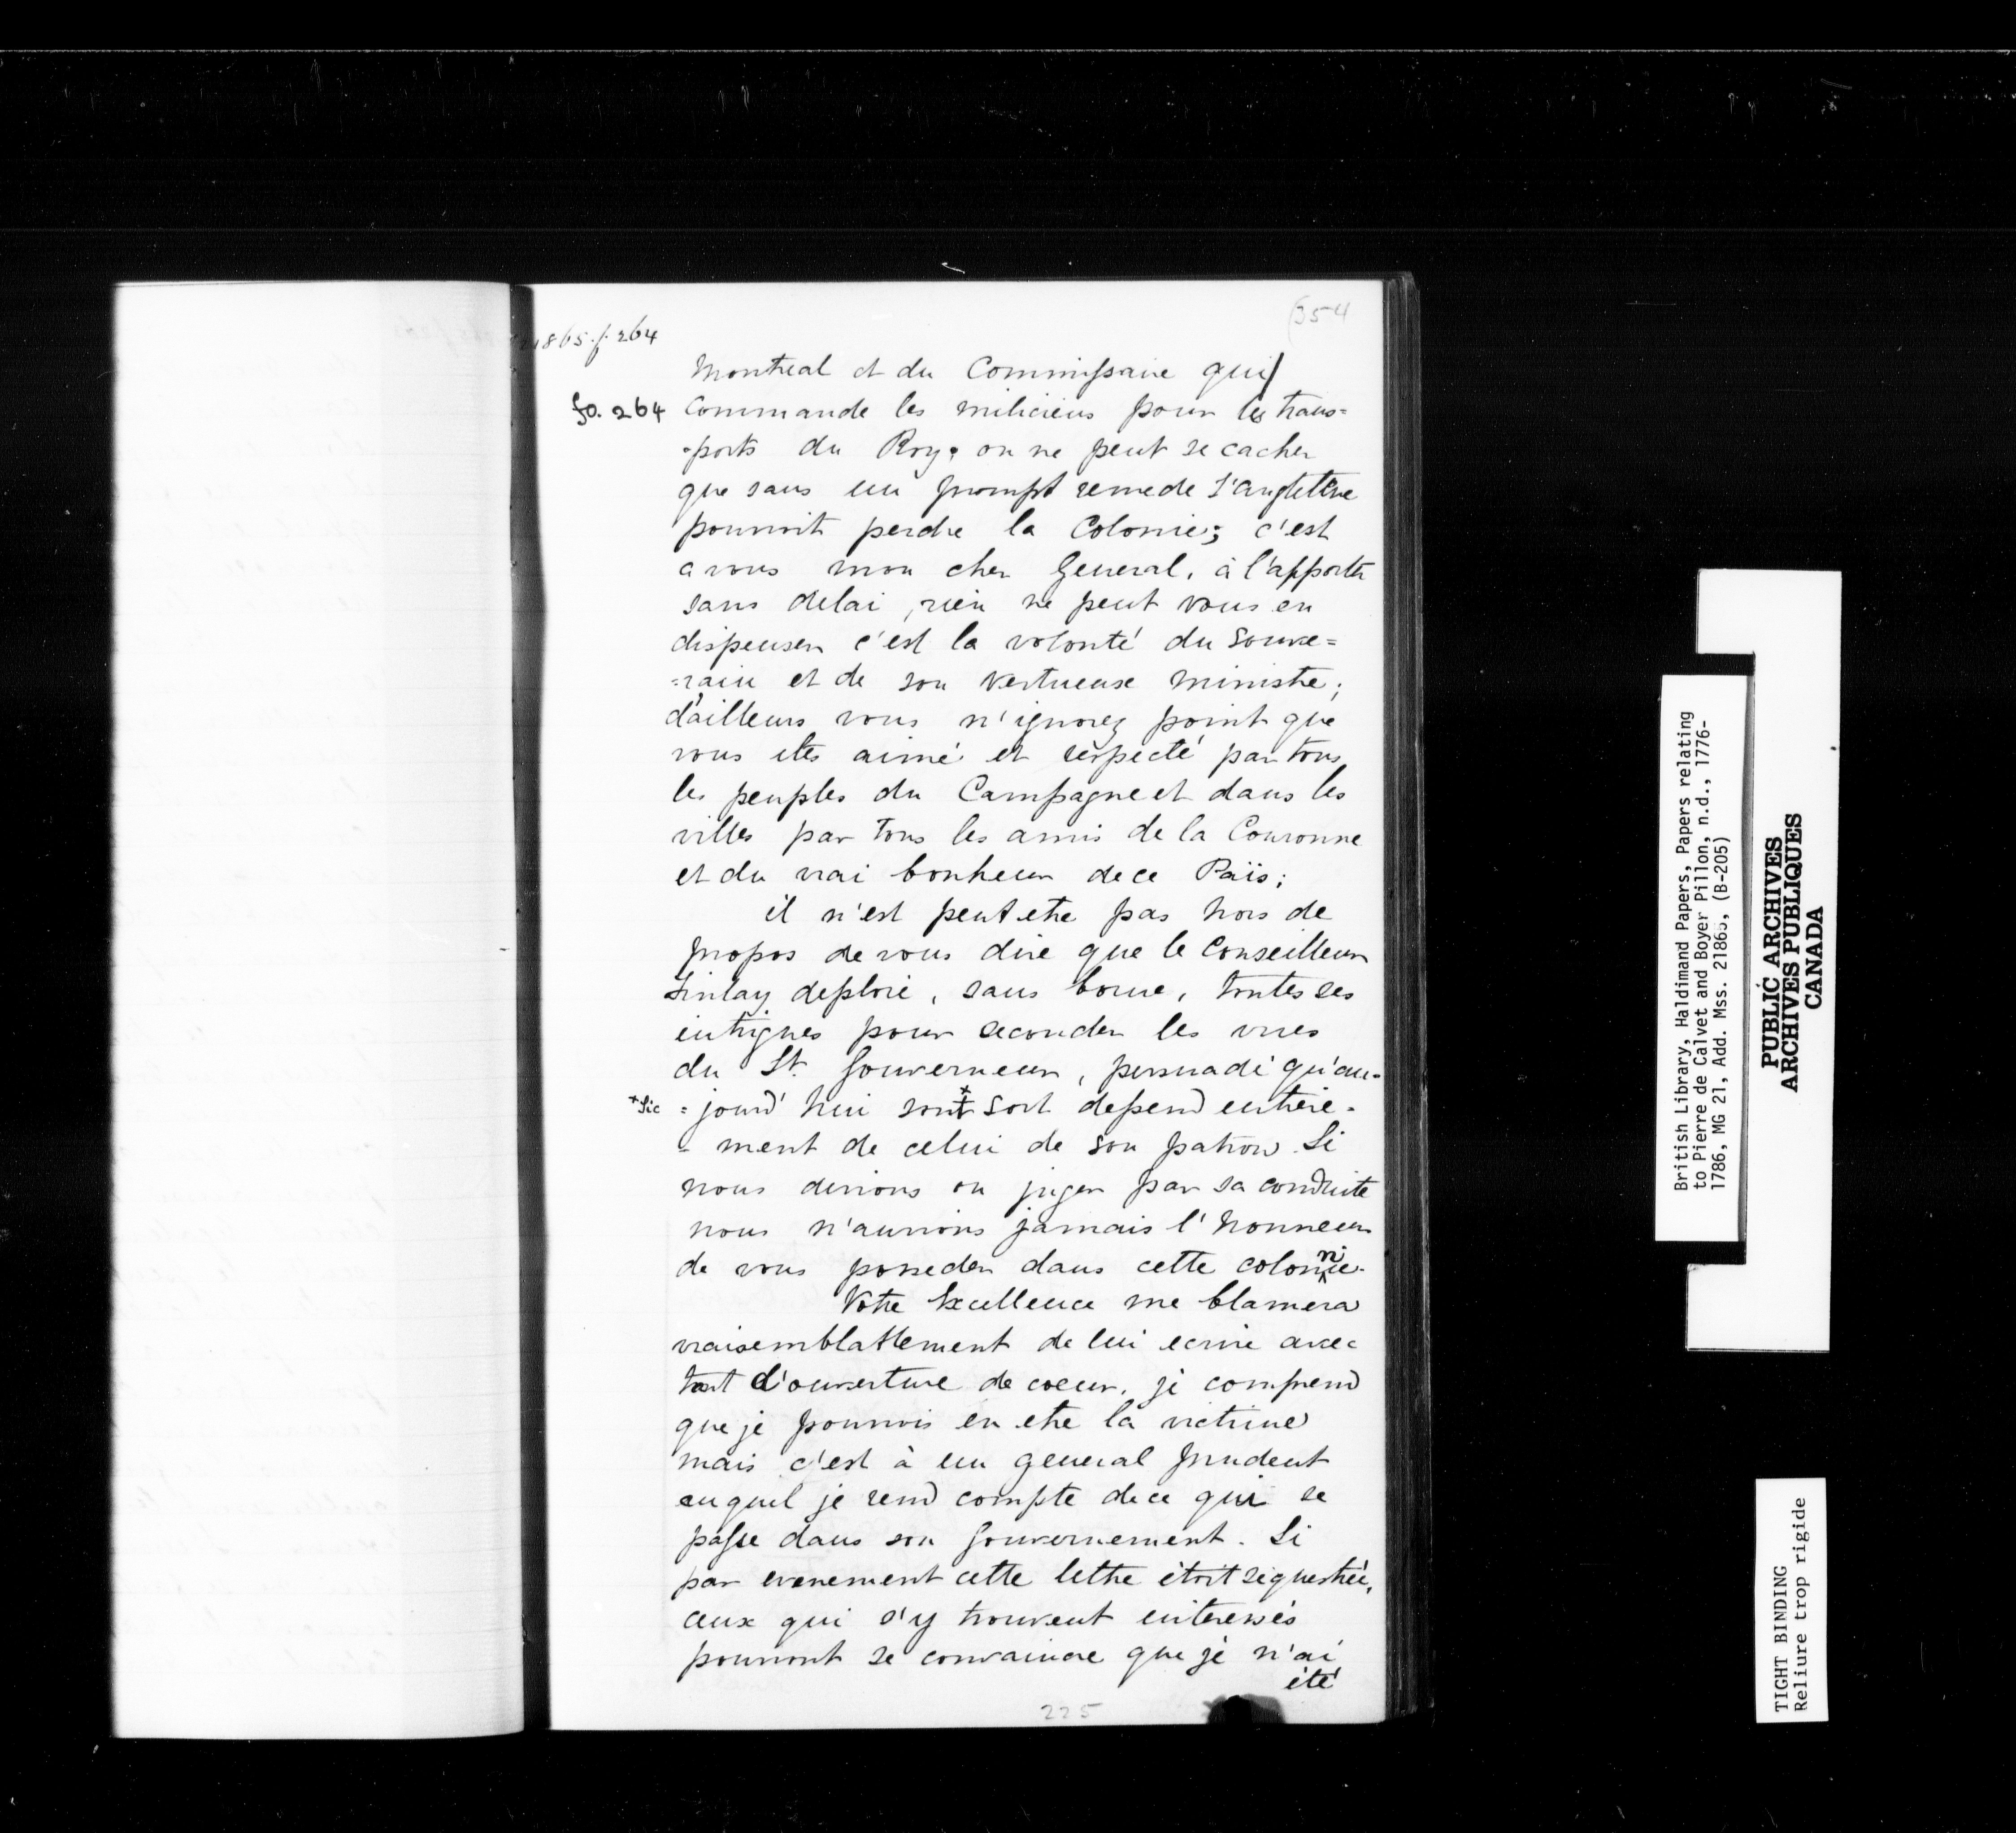 (354
21865.f.264
Montreal et du Commissaire qui/
fo. 264 Commande les miliciens pour les trans=
=ports du Roy; on ne peut se cacher
que sans un prompt remede L'angleterre
pourroit perdre la Colonie; c'est
a vous mon cher General, à l'apporter
sans delai, rien ne peut vous en
dispenser c'est la volonté du Souve=
=rain et de son vertueux ministre;
d'ailleurs vous n'ignorez point que
vous etes aimé et respecté par tous
les peuples du Campagne et dans les
villes par tous les amis de la Couronne
et du vrai bonheur de ce Païs;
il n'est peut etre pas hors de
propos de vous dire que le Conseilleur
Finlay deploie, sans borne, toutes ses
intrigues pour seconder les vues
du Lt. Gouverneur, persuadé qu'au=
*Sic =jourd'hui sont* sort depend entiere=
=ment de celui de son patron. Si
nous devions en juger par sa conduite
nous n'aurions jamais l'honneur
de vous posseder dans cette colonnie.
Votre Excellence me blamera
vraisemblablement de lui ecrire avec
tant d'ouverture de coeur, je comprend
que je pourrois en etre la victime
mais c'est à un general prudent
auquel je rend compte de ce qui se
passe dans son Gouvernement. Si
par evenement cette lettre étoit séquestrée,
ceux qui s'y trouvent interessés
pourront se convaincre que je n'ai
été
225
British Library, Haldimand Papers, Papers relating
to Pierre de Calvet and Boyer Pillon, n.d., 1776-
1786, MG 21, Add. Mss. 21865, (B-205)
PUBLIC ARCHIVES
ARCHIVES PUBLIQUES
CANADA
TIGHT BINDING
Reliure trop rigide